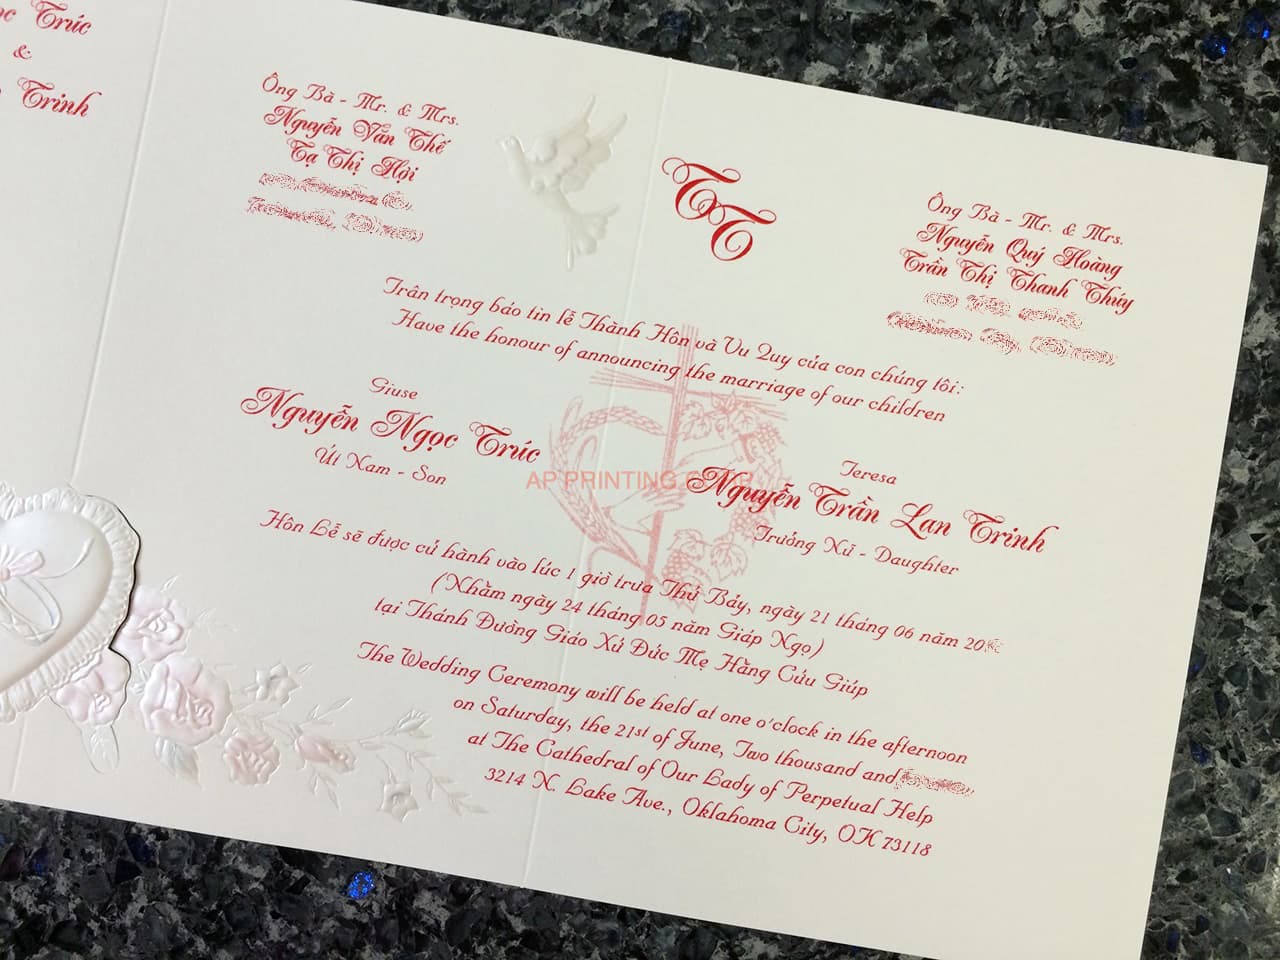 ọc Trúc
&
Trinh
Ông Bà - Mr. & Mrs.
Nguyễn Văn Thế
Tạ Thị Hợi
TT
Ông Bà - Mr. & Mrs.
Nguyễn Quý Hoàng
Trần Thị Thanh Thúy
Trân trọng báo tin lễ Thành Hôn và Vu Quy của con chúng tôi:
Have the honour of announcing the marriage of our children
Giuse
Nguyễn Ngọc Trúc
Út Nam - Son
AP PRINTING
Teresa
Nguyễn Trần Lan Trinh
Trưởng Nữ - Daughter
Hôn Lễ sẽ được cử hành vào lúc 1 giờ trưa Thứ Bảy, ngày 21 tháng 06 năm 20
(Nhằm ngày 24 tháng 05 năm Giáp Ngọ)
tại Thánh Đường Giáo Xứ Đức Mẹ Hằng Cứu Giúp
The Wedding Ceremony will be held at one o'clock in the afternoon
on Saturday, the 21st of June, Two thousand and
at The Cathedral of Our Lady of Perpetual Help
3214 N. Lake Ave., Oklahoma City, OK 73118